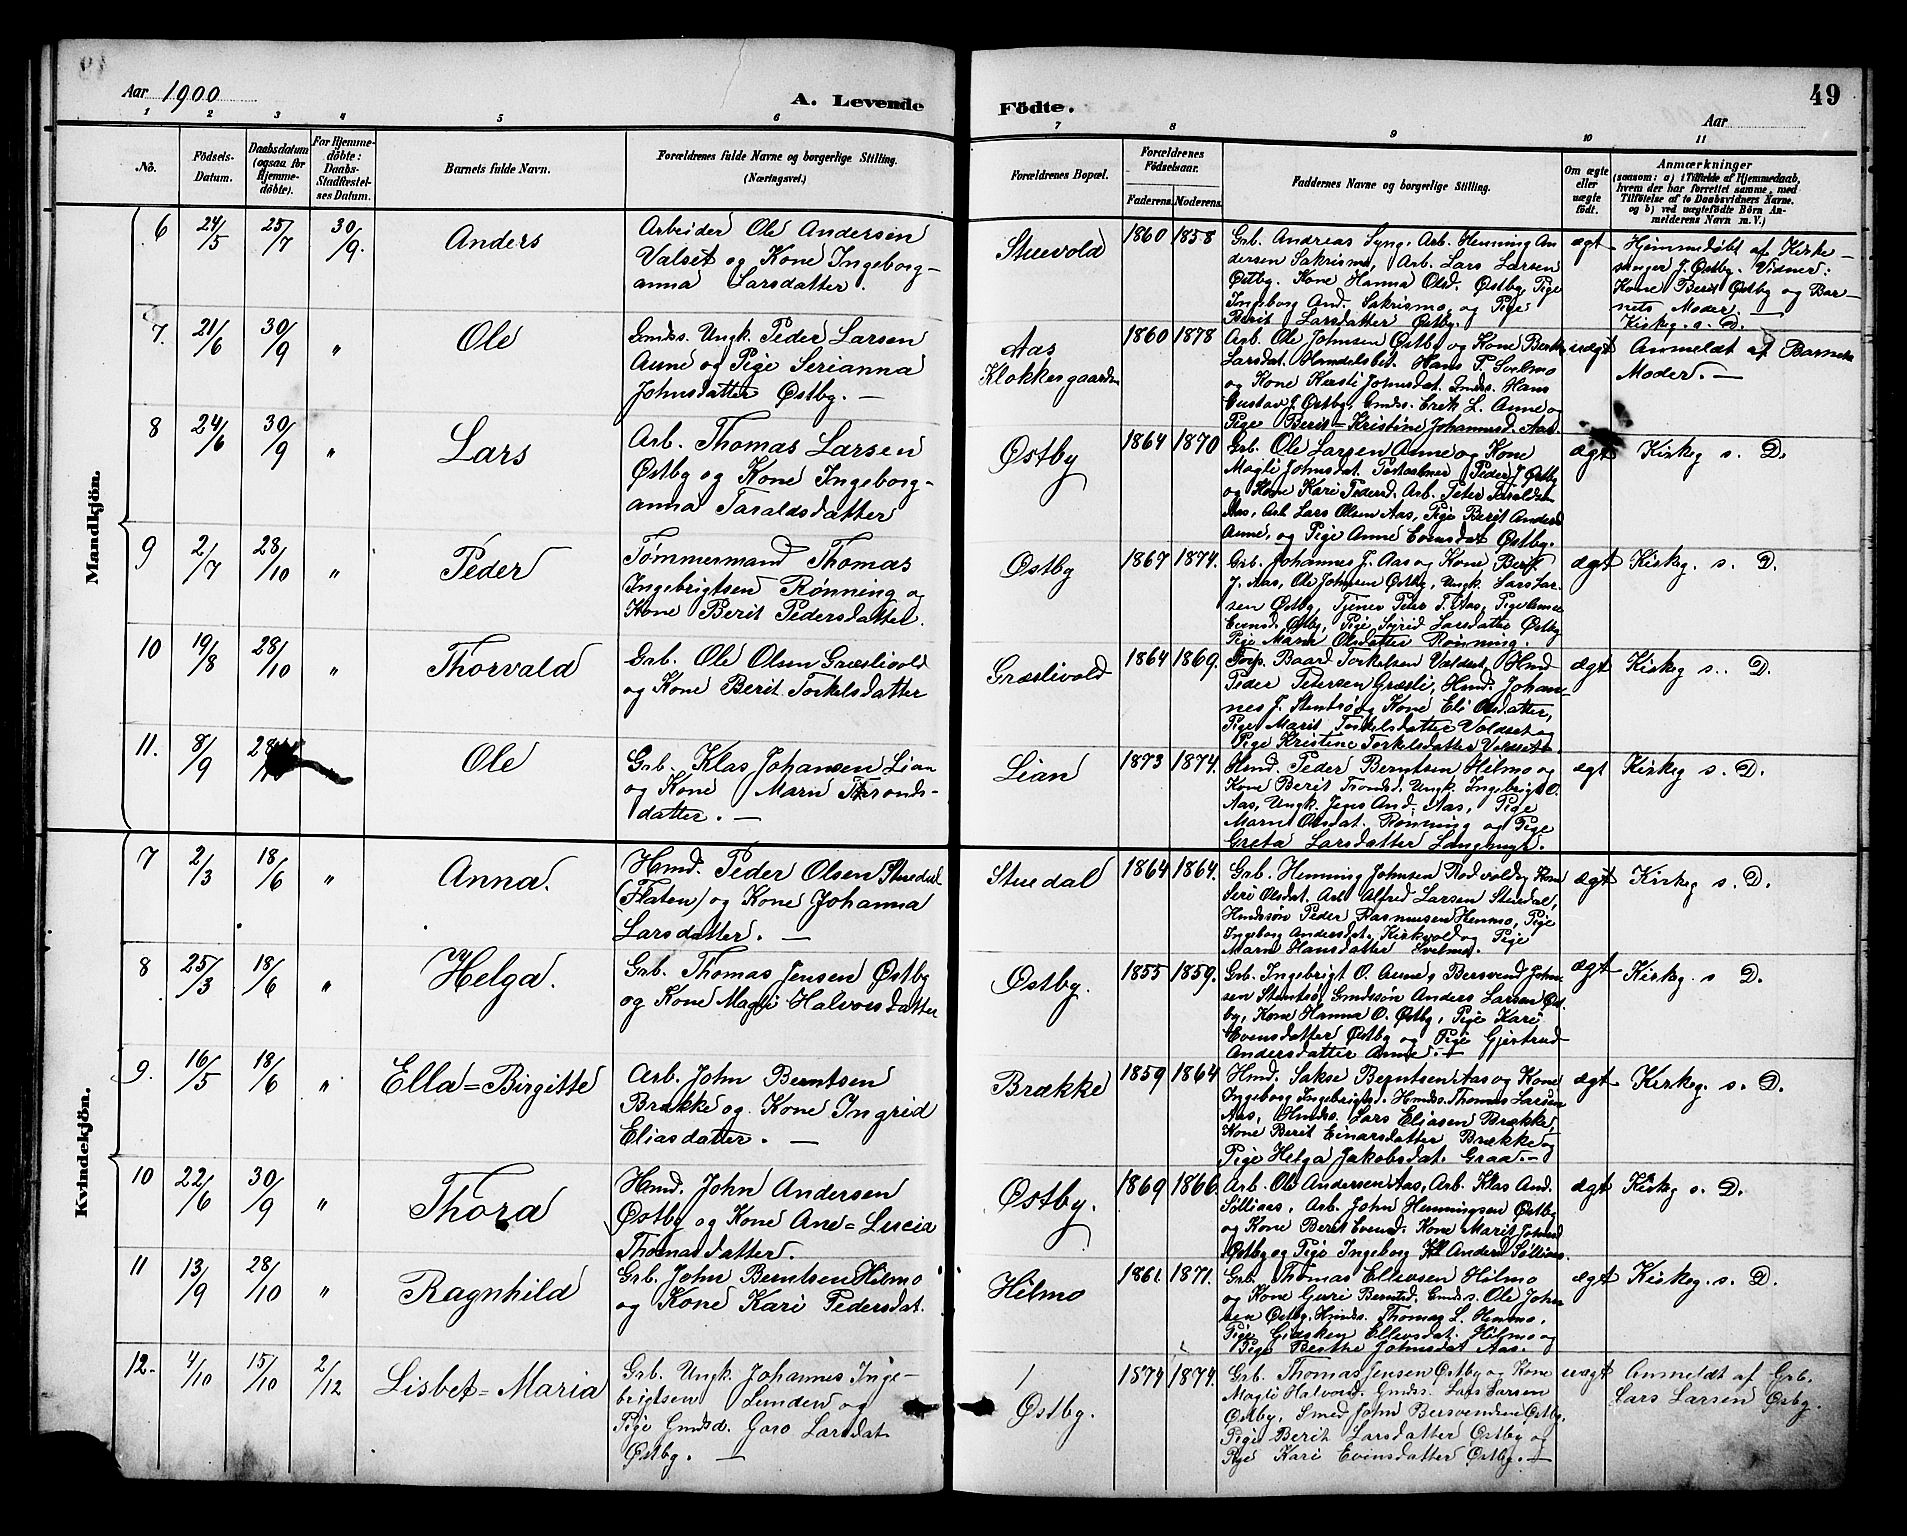 Aar 1900
A. Levende
Födte.
49
Aar
1 2 3 4 5 6 7 8 9 10 11
No.
Födsels-
Datum.
Daabsdatum
(ogsaa for
Hjemme-
döbte).
For Hjemme-
döbte:
Daabs-
Stadfæstel-
ses Datum.
Barnets fulde Navn.
Forældrenes fulde Navne og borgerlige Stilling.
(Næringsvei.)
Forældrenes Bopæl.
Forældrenes
Födselsaar.
Faderens.
Moderens.
Faddernes Navne og borgerlige Stilling.
Om ægte
eller
uægte
födt.
Anmærkninger
(saasom: a) i Tilfælde af Hjemmedaab,
hvem der har forrettet samme, med
Tilföielse af to Daabsvidners Navne.
og b) ved uægtefödte Börn An-
melderens Navn m. V.)
Mandkjön.
6 24/5 25/7 30/9. Anders
Arbeider Ole Andersen
Valset og Kone Ingeborg-
anna Larsdatter.
Stuevold 1860 1858
Grb. Andreas Lyng, Arb. Henning An-
dersen Sakrismo, Arb. Lars Larsen
Østby. Kone Hanna Olsd. Østby Pige
Ingeborg And. Sakrismo, og Pige
Berit Larsdatter Østby.
ægt
Hjemmedøbt af Kirke-
sanger J. Østby. Vidner:
Kone Berit Østby og Bar-
nets Moder. —
Kirkeg. s. D.
7. 21/6 30/9 " Ole
Gmds. Ungk. Peder Larsen
Aune og Pige Serianna
Johnsdatter Østby. —
Aas
Klokkergaarden 1860 1878
Arb. Ole Johnsen Østby og Kone Berit
Larsdat. Handelsbet. Hans P. Svelmo
og Kone Kirsti Johnsdat. Gmds. Hans
Gustav J. Østby, Gmds. Erik L. Aune og
Pige Berit-Kristine Johannesd. Aas.
uægt
Anmeldt af Barnets
Moder. —
8 24/6 30/9 " Lars
Arb. Thomas Larsen
Østby og Kone Ingeborg-
anna Taraldsdatter
Østby 1864 1870
Grb. Ole Larsen Aune og Kone
Magli Johnsdat. Postaabner Peder J. Østby
og Kone Kari Pedersd. Arb. Peter Taraldsen
Aas, Arb. Lars Olsen Aas, Pige Berit Andersd.
Aune, og Pige Anne Evensdat Østby.
ægt
Kirkeg s. D.
9 2/7 28/10 " Peder
Tømmermand Thomas
Ingebrigtsen Rønning og
Kone Berit Pedersdatter.
Østby 1867 1874.
Grb. Johannes J. Aas og Kone Berit
J. Aas, Ole Johnsen Østby, Ungk. Lars Lar-
sen Østby, Tjener Peter T. Aas, Pige Anne
Evensd. Østby, Pige Sigrid Larsdatter Østby
Pige Marn Olsdatter Rønning.
ægt
Kirkeg. s. D.
10 19/8 28/10 " Thorvald
Grb. Ole Olsen Græslivold
og Kone Berit Torkelsdatter
Græslivold 1864 1869.
Torp. Baard Torkelsen Valdset, Hmd
Peder Pedersen Græsli, Hmd. Johan-
nes J. Stentrø og Kone Eli Olsdatter,
Pige Marit Torkelsdatter Valdset og
Pige Kristine Torkelsdatter Valdset.
ægt
Kirkeg s. D.
11. 8/9 28 Ole
Grb. Klas Johansen Lian
og Kone Marn Tronds-
datter. —
Lian 1873 1874.
Hmd. Peder Berntsen Hilmo og
Kone Berit Trondsd. Ungk. Ingebrigt O.
Aas, Ungk. Jens And. Aas, Pige
Marn Olsdat. Rønning og Pige
Greta Larsdatter Langmyr.
ægt
Kirkeg s. D.
Kvindekjön.
7 2/3 18/6 " Anna.
Hmd. Peder Olsen Stuedal
(Flaten) og Kone Johanna
Larsdatter. —
Stuedal 1864 1864.
Grb. Henning Johnsen Rodvold og Kone
Siri Olsdat. Arb. Alfred Larsen Stuedal,
Hmdssøn Peder Rasmussen Henmo, Pige
Ingeborg Andersdat. Kirkvold og Pige
Marn Hansdatter Svelmo.
ægt
Kirkeg s. D.
8 25/3 18/6 " Helga.
Grb. Thomas Jensen Østby
og Kone Magli Halvorsdatter
Østby. 1855 1859.
Grb. Ingebrigt O. Aune, Bersvend John-
sen Stentrø, Gmdssøn Anders Larsen Øst-
by, Kone Hanna O. Østby, Pige Kari
Evensdatter Østby og Pige Gjertrud
Andersdatter Aune. —
ægt
Kirkeg. s D.
9. 16/5 18/6 " Ella=Birgitte
Arb. John Berntsen
Brække og Kone Ingrid
Eliasdatter. —
Brække 1859 1864
Hmd. Sakse Berntsen Aas og Kone
Ingeborg Ingebrigtsd. Hmds. Thomas Larsen
Aas, Hmds. Lars Eliasen Brække,
Kone Berit Einarsdatter Brække og
Pige Helga Jakobsdat. Graa. —
ægt
Kirkeg. s. D.
10 22/6 30/9 " Thora
Hmd. John Andersen
Østby og Kone Ane=Lucia
Thomasdatter.
Østby. 1869 1866.
Arb. Ole Andersen Aas, Arb. Klas And.
Sølliaas, Arb. John Henningsen Østby
og Kone Berit Evensd. Kone Marit Johnsd
Østby og Pige Ingeborg Andersd Sølliaas.
ægt
Kirkeg s. D.
11 13/9 28/10 " Ragnhild
Grb. John Berntsen Hilmo
og Kone Kari Pedersdat.
Hilmo 1861. 1871.
Grb. Thomas Ellevsen Hilmo
og Kone Guri Berntsd. Gmds. Ole John-
sen Østby, Hmds. Thomas L. Henmo,
Pige Gjesken Ellevsdat. Hilmo og
Pige Berthe Johnsdat Aas.
ægt
Kirkeg. s. D.
12. 4/10 15/10 2/12 Lisbet=Maria
Grb. Ungk. Johannes Inge-
brigtsen Lunden og
Pige Gmdsd. Goro Larsdat
Østby. —
Østby. 1874 1874.
Grb. Thomas Jensen Østby og Kone
Magli Halvorsd. Gmds. Lars Larsen
Østby, Smed John Bersvendsen Østby,
Pige Berit Larsdatter Østby og
Pige Kari Evensdatter Østby. —
uægt
Anmeldt af Grb.
Lars Larsen Østby.